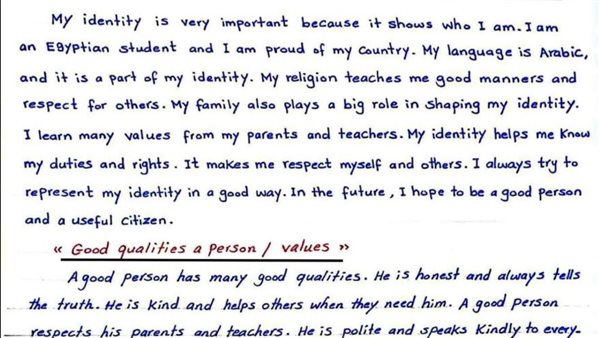 My identity is very important because it shows who I am. I am
an Egyptian student and I am proud of my country. My language is Arabic,
and it is a part of my identity. My religion teaches me good manners and
respect for others. My family also plays a big role in shaping my identity.
I learn many values from my parents and teachers. My identity helps me know
my duties and rights. It makes me respect myself and others. I always try to
represent my identity in a good way. In the future, I hope to be a good person
and a useful citizen.
« Good qualities a person / values »
A good person has many good qualities. He is honest and always tells
the truth. He is kind and helps others when they need him. A good person
respects his parents and teachers. He is polite and speaks kindly to every-